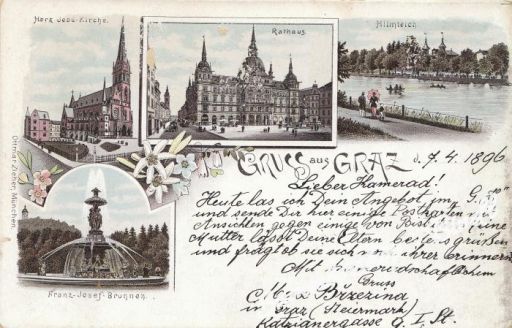 Herz Jesu-Kirche.
Rathaus
Hilmteich
Ottmar Zieher, München.
GRUSS aus GRAZ
d. 7.4.1896
Lieber Kamerad!
Heute las ich Dein Angebot im „G.
und sende Dir hier einige Postkarten mit
Ansichten gegen einige von
Mutter lässt Deine Eltern bestens grüßen
und frägt ob sie sich noch ihrer erinnern
Mit
Gruss
Brzezina
in Graz (Steiermark)
Katzianergasse 9, I. St.
Franz-Josef-Brunnen.